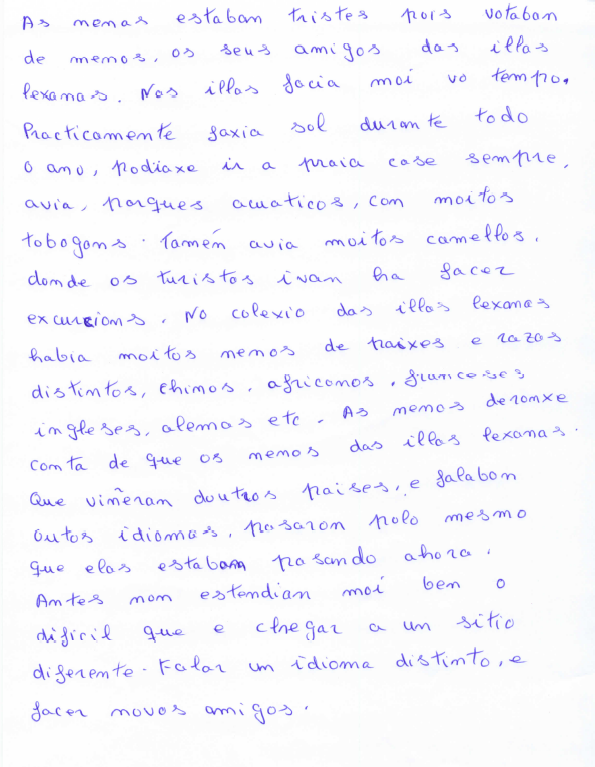 As nenas estaban tristes pois votaban
de menos, os seus amigos das illas
lexanas. Nas illas facia moi vo tempo.
Practicamente faxia sol durante todo
o ano, podiaxe ir a praia case sempre,
avia, parques acuaticos, con moitos
tobogans. Tamén avia moitos camellos,
donde os turistos ivan ha facer
excursions. No colexio das illas lexanas
habia moitos nenos de paixes e razas
distintos, chinos, africanos, franceses
ingleses, alemas etc. As nenas deronxe
conta de que os nenos das illas lexanas.
Que viñeran doutros paises, e falabon
outos idiomas, pasaron polo mesmo
que elas estaban pasando ahora.
Antes non estendian moi ben o
dificil que e chegar a un sitio
diferente. Falar un idioma distinto, e
facer novos amigos.